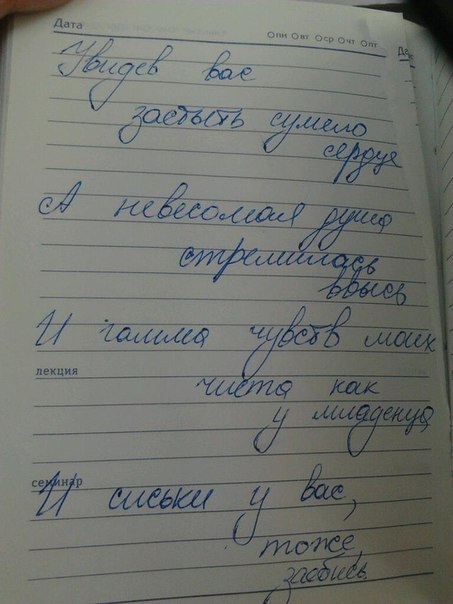 Дата Опн Овт Оср Очт Опт
Да
Увидев вас
застыть сумело
сердце
А невесомая душа
стремилась
ввысь
И гамма чувств моих
лекция
чиста как
у младенца
семинар
И сиськи у вас,
тоже,
заебись.